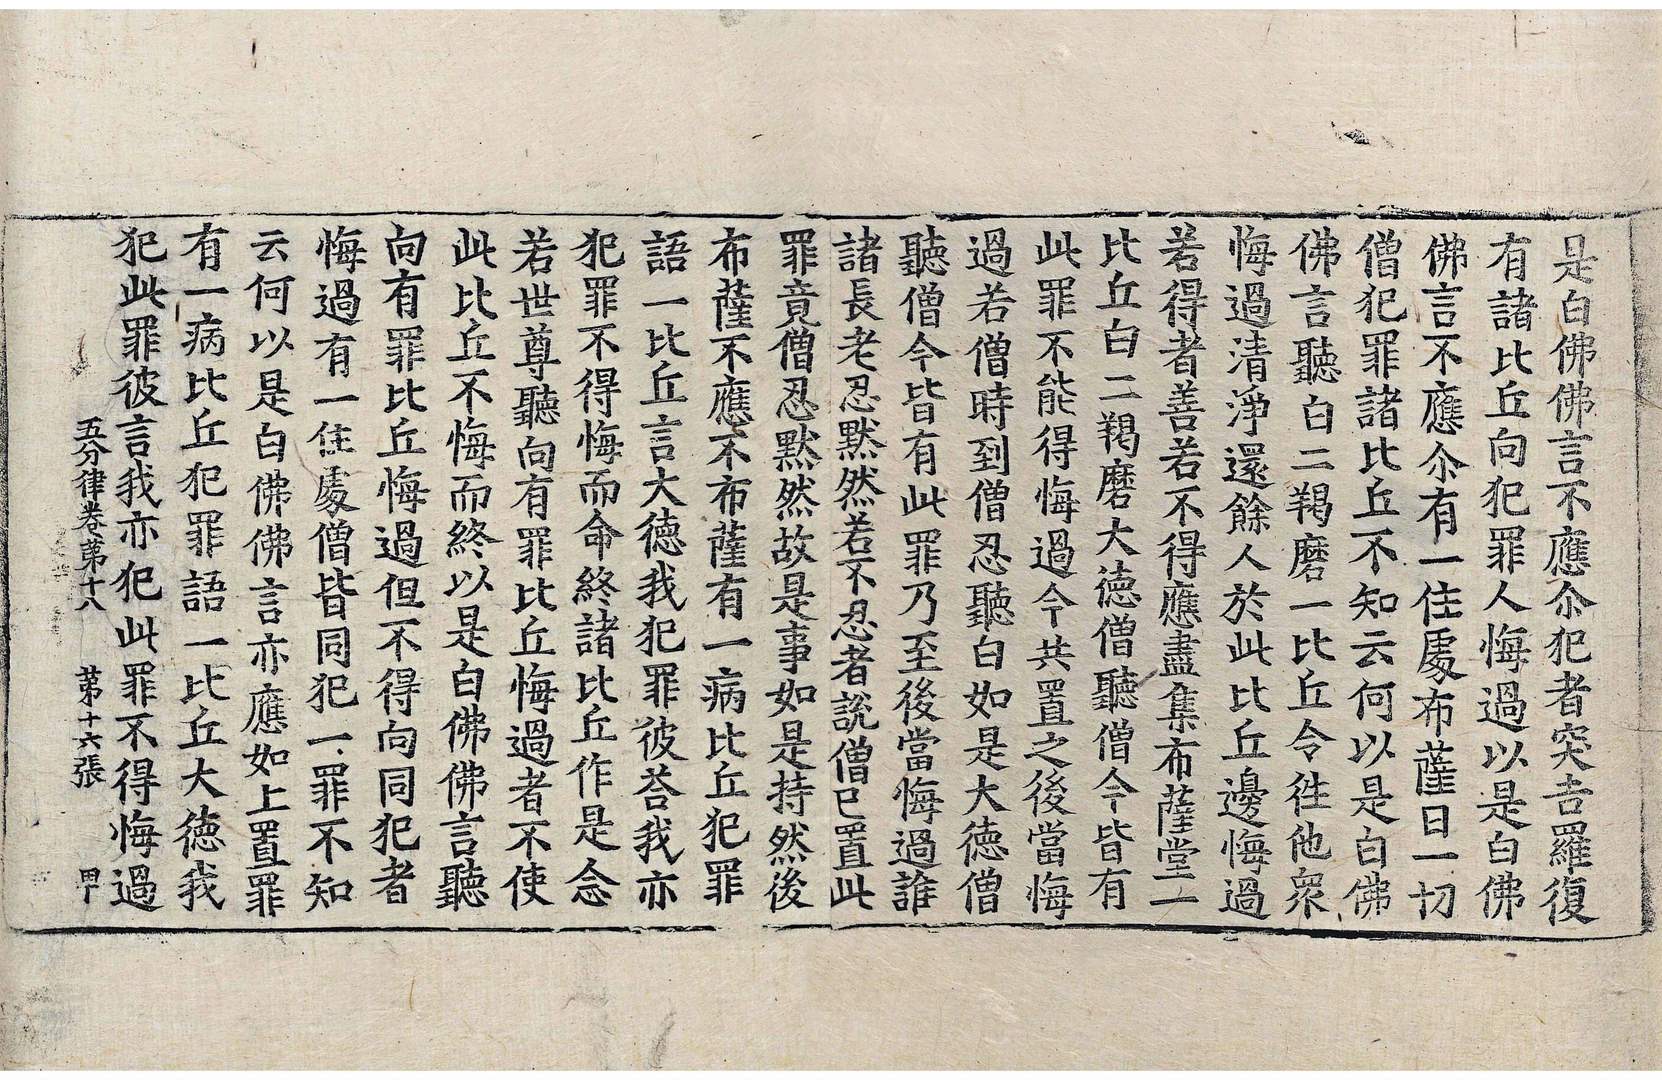 是白佛佛言不應尒犯者突吉羅復
有諸比丘向犯罪人悔過以是白佛
佛言不應尒有一住處布薩日一切
僧犯罪諸比丘不知云何以是白佛
佛言聽白二羯磨一比丘令往他衆
悔過清淨還餘人於此比丘邊悔過
若得者善若不得應盡集布薩堂一
比丘白二羯磨大德僧聽僧今皆有
此罪不能得悔過今共置之後當悔
過若僧時到僧忍聽白如是大德僧
聽僧今皆有此罪乃至後當悔過誰
諸長老忍默然若不忍者說僧已置此
罪竟僧忍默然故是事如是持然後
布薩不應不布薩有一病比丘犯罪
語一比丘言大德我犯罪彼荅我亦
犯罪不得悔而命終諸比丘作是念
若世尊聽向有罪比丘悔過者不使
此比丘不悔而終以是白佛佛言聽
向有罪比丘悔過但不得向同犯者
悔過有一住處僧皆同犯一罪不知
云何以是白佛佛言亦應如上置罪
有一病比丘犯罪語一比丘大德我
犯此罪彼言我亦犯此罪不得悔過
五分律卷第十八 第十六張 甲